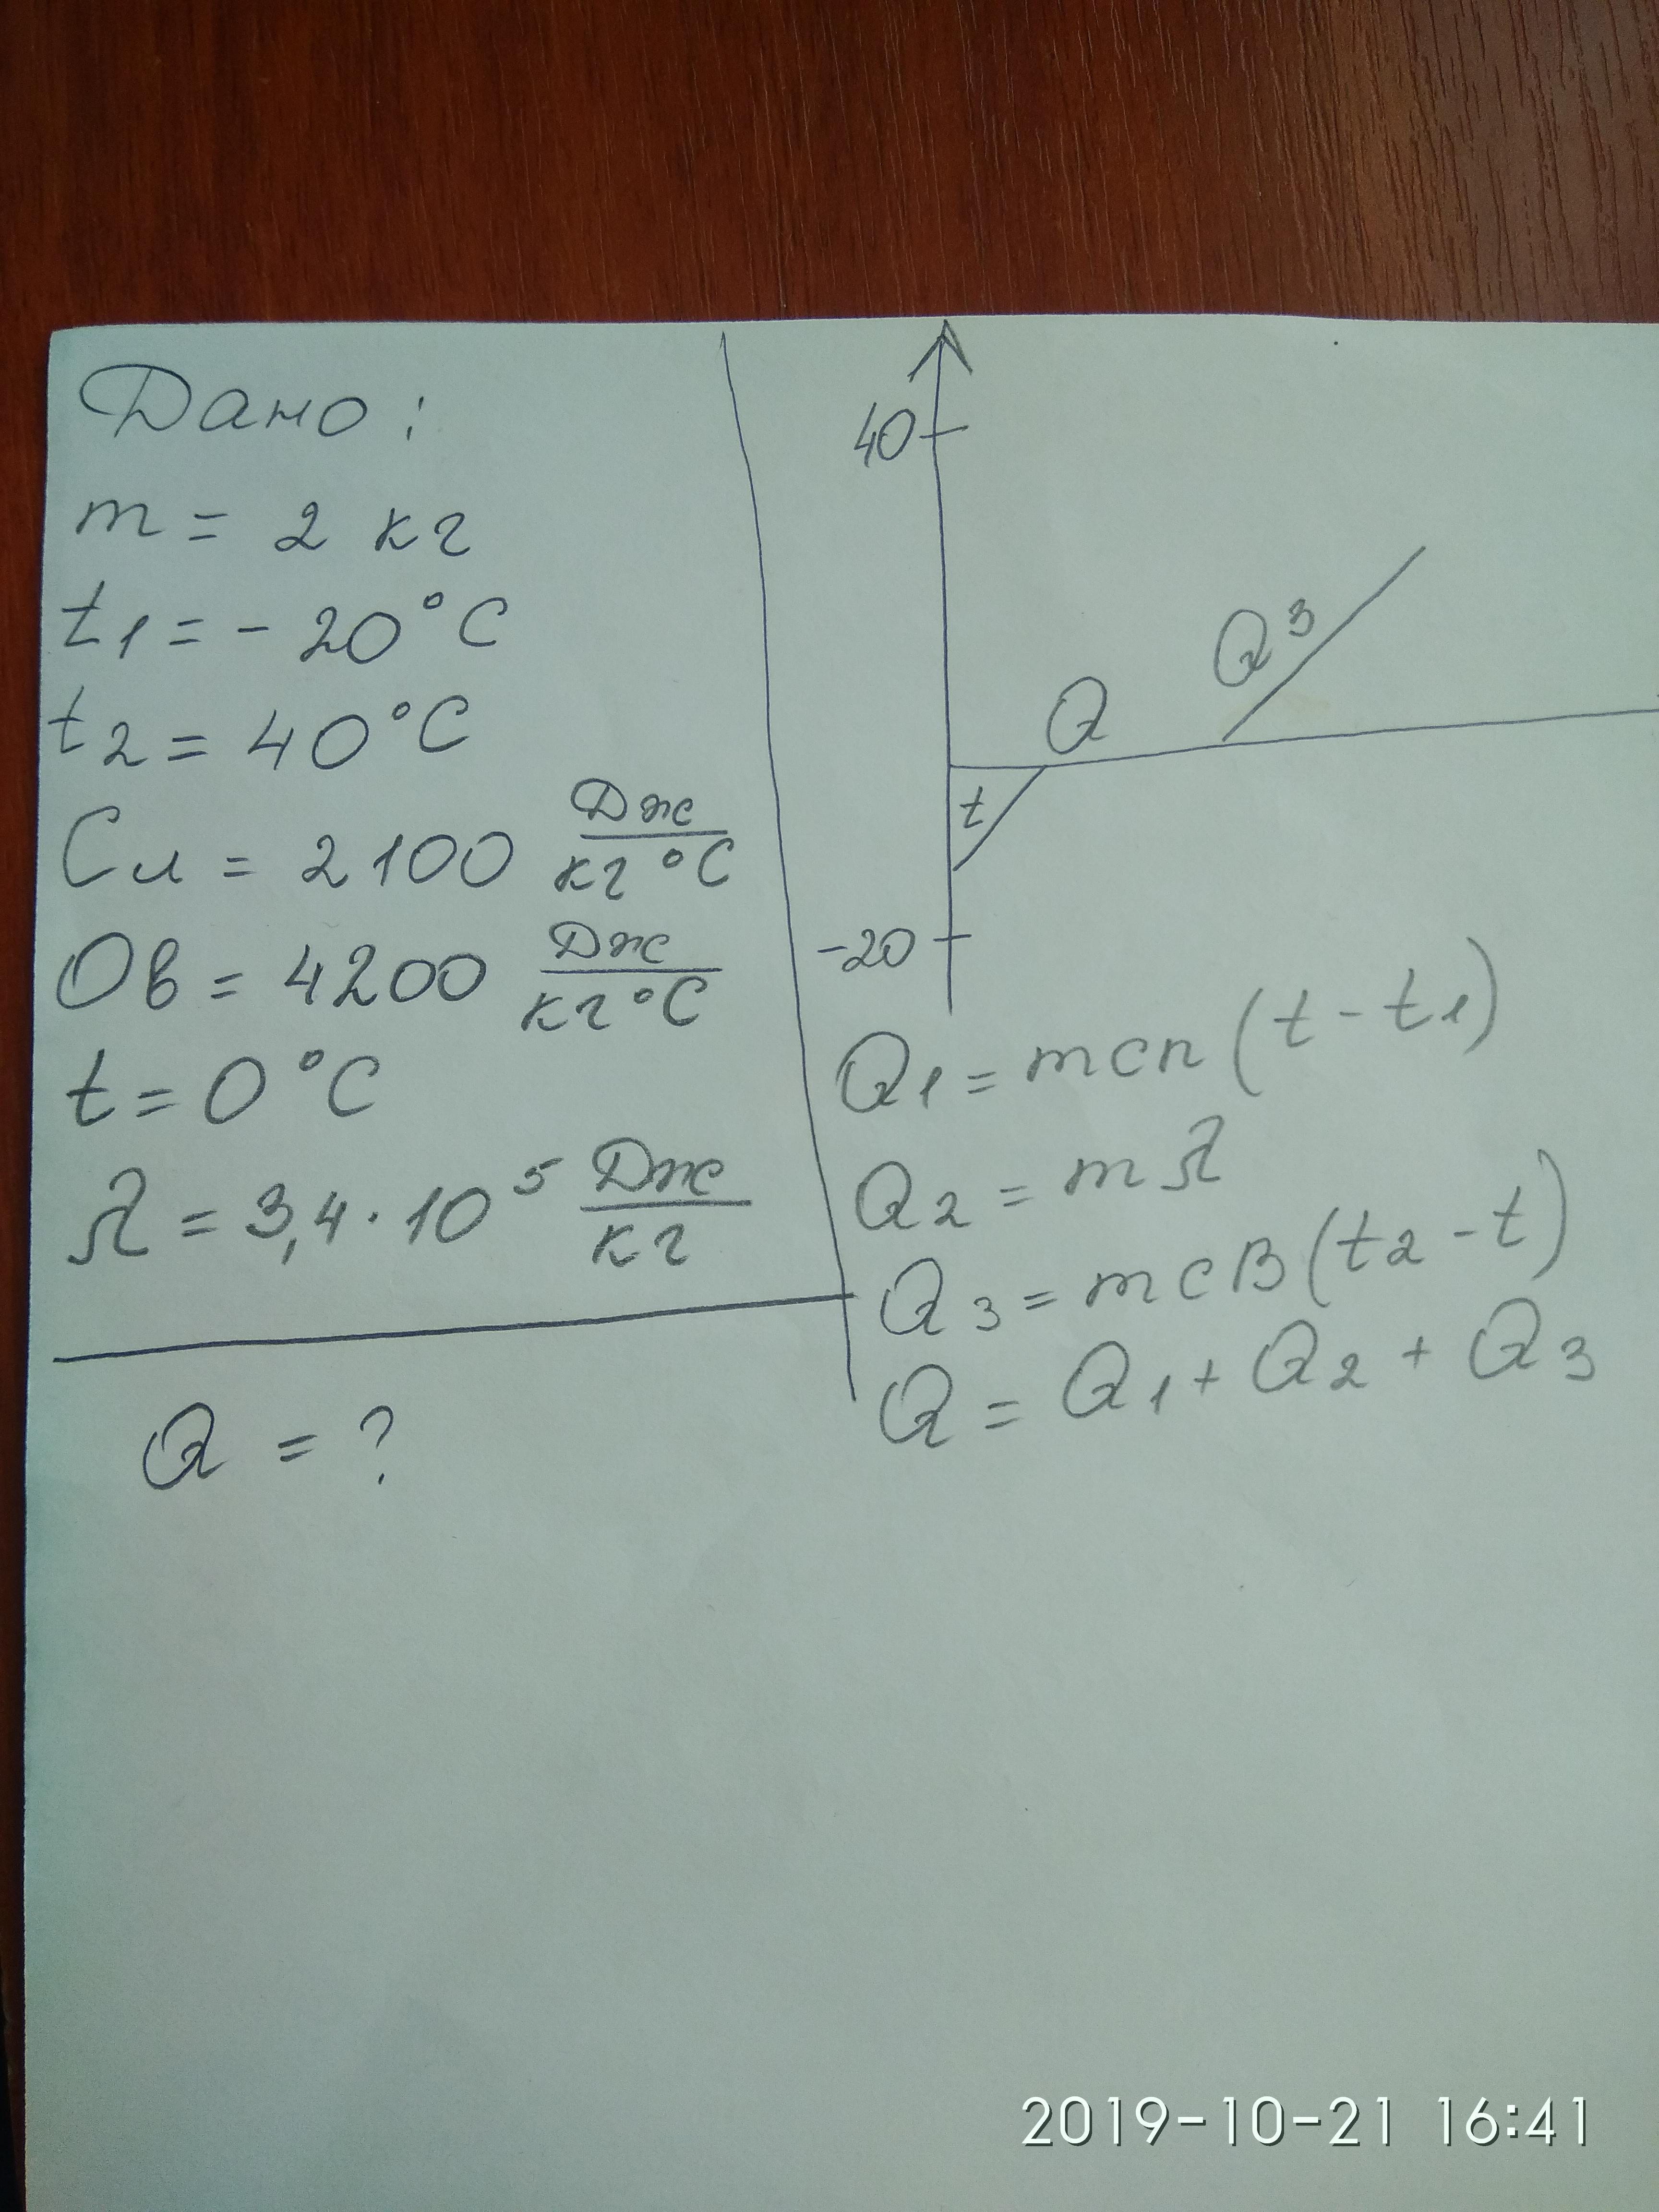 Дано:
m = 2 кг
t1 = - 20°C
t2 = 40°C
Cл = 2100 Дж/кг °C
Oв = 4200 Дж/кг °C
t = 0 °C
λ = 3,4 · 10⁵ Дж/кг
Q = ?
40
Q³
Q
t
-20
Q1 = mcп (t - t1)
Q2 = mλ
Q3 = mcB (t2 - t)
Q = Q1 + Q2 + Q3
2019-10-21 16:41